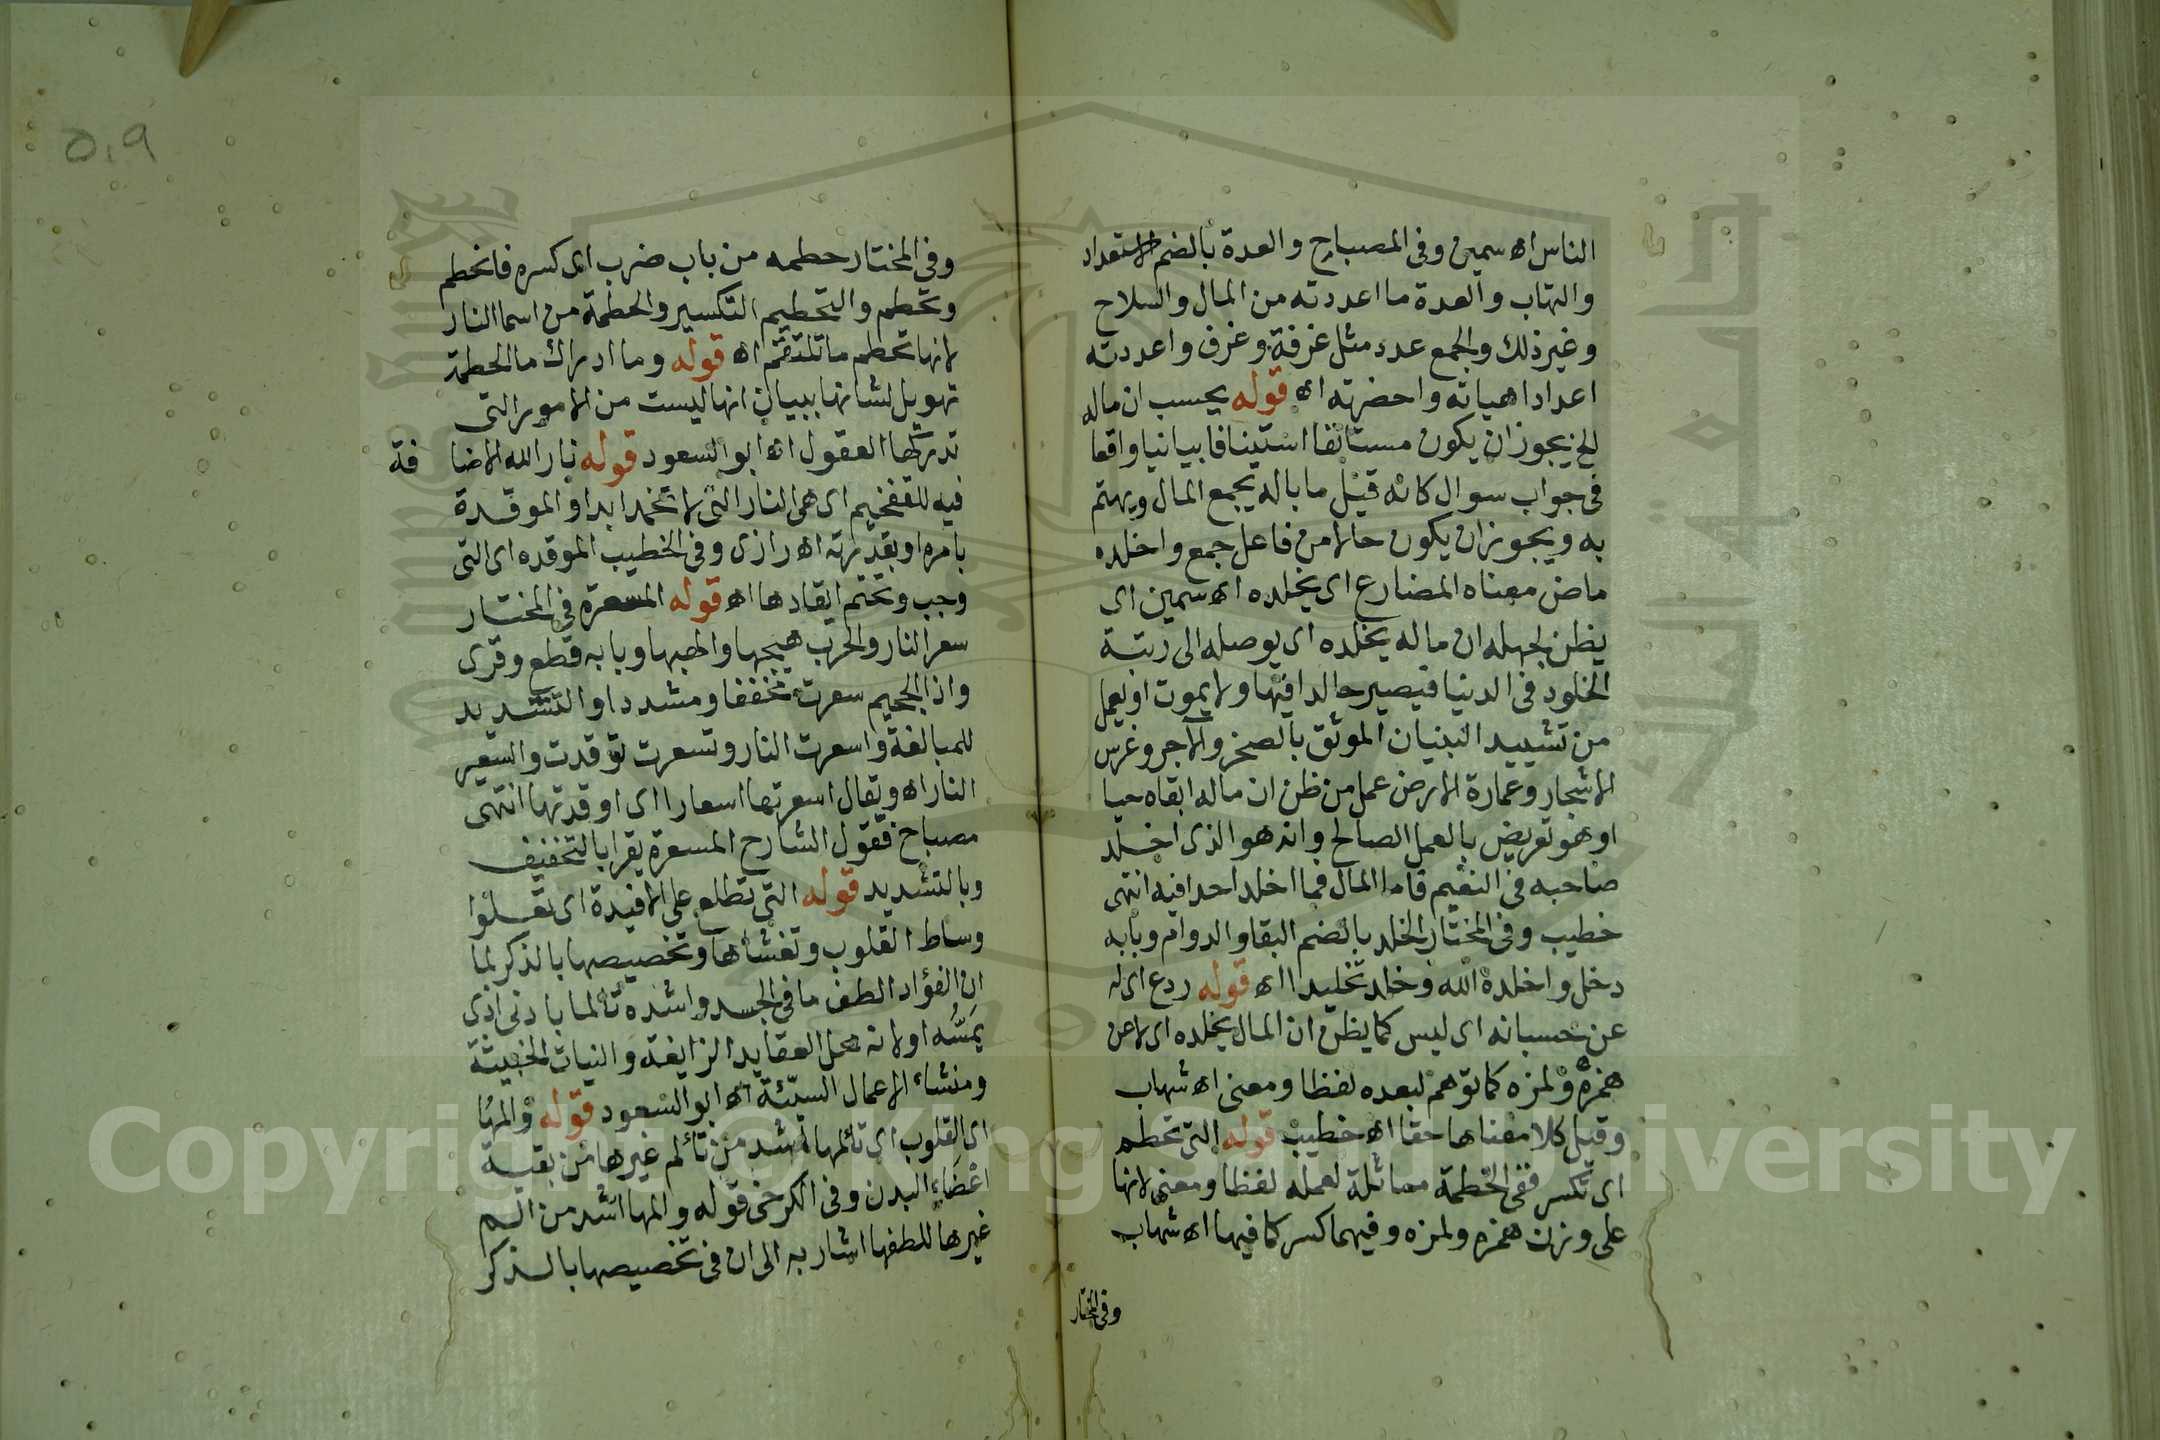 الناس اه سمين وفى المصباح والعدة بالضم الاستعداد
والتهاب والعدة ما اعددته من المال والسلاح
وغير ذلك والجمع عدد مثل غرفة وغرف واعددته
اعدادا هياته واحضرته اه قوله يحسب ان ماله
الخ يجوز ان يكون مستانفا استينافا بيانيا واقعا
فى جواب سوال كانه قيل ما باله يجمع المال ويهتم
به ويجوز ان يكون حالا من فاعل جمع واخلده
ماض معناه المضارع اى يخلده اه سمين اى
يظن لجهله ان ماله يخلده اى يوصله الى رتبة
الخلود فى الدنيا فيصير خالدا فيها ولا يموت او يعمل
من تشييد البنيان الموثق بالصخر والآجر وغرس
الاشجار وعمارة الارض عمل من ظن ان ماله ابقاه حيا
او هو تعريض بالعمل الصالح وانه هو الذى اخلد
صاحبه فى النعيم فاما المال فما اخلد احدا فيه انتهى
خطيب وفى المختار الخلد بالضم البقا والدوام وبابه
دخل واخلده الله وخلده تخليدا اه قوله ردع اى له
عن حسبانه اى ليس كما يظن ان المال يخلده اى لا عن
همزه ولمزه كما توهم لبعده لفظا ومعنى اه شهاب
وقيل كلا معناها حقا اه خطيب قوله التى تحطم
اى تكسر ففى الحطمة مماثلة لعمله لفظا ومعنى لانها
على وزن همزه ولمزه وفيهما كسر كما فيها اه شهاب
وفى المختار
٥٠٩
وفى المختار حطمه من باب ضرب اى كسره فانحطم
وتحطم والتحطيم التكسير والحطمة من اسما النار
لانها تحطم ما تلتقم اه قوله وما ادراك ما الحطمة
تهويل لشانها ببيان انها ليست من الامور التى
تدركها العقول اه ابو السعود قوله نار الله الاضا فة
فيه للتفخيم اى هى النار التى لا تخمد ابدا والموقدة
بامره او بقدرته اه رازى وفى الخطيب الموقده اى التى
وجب وتحتم ايقادها اه قوله المسعرة فى المختار
سعر النار والحرب هيجها والهبها وبابه قطع وقرى
واذا الجحيم سعرت مخففا ومشددا والتشديد
للمبالغة واسعرت النار وتسعرت توقدت والسعير
النار اه ويقال اسعرتها اسعارا اى اوقدتها انتهى
مصباح فقول الشارح المسعرة يقرا بالتخفيف
وبالتشديد قوله التى تطلع على الافيدة اى تعلوا
وساط القلوب وتغشاها وتخصيصها بالذكر لما
ان الفؤاد الطف ما فى الجسد واشده تألما بادنى اذى
يمسه او لانه محل العقايد الزايغة والنيات الخبيثة
ومنشاء الاعمال السيئة اه ابو السعود قوله والمها
اى القلوب اى تالمها اشد من تألم غيرها من بقية
اعضاء البدن وفى الكرخى قوله والمها اشد من الم
غيرها للطفها اشار به الى ان فى تخصيصها بالذكر
Copyright © King Saud University